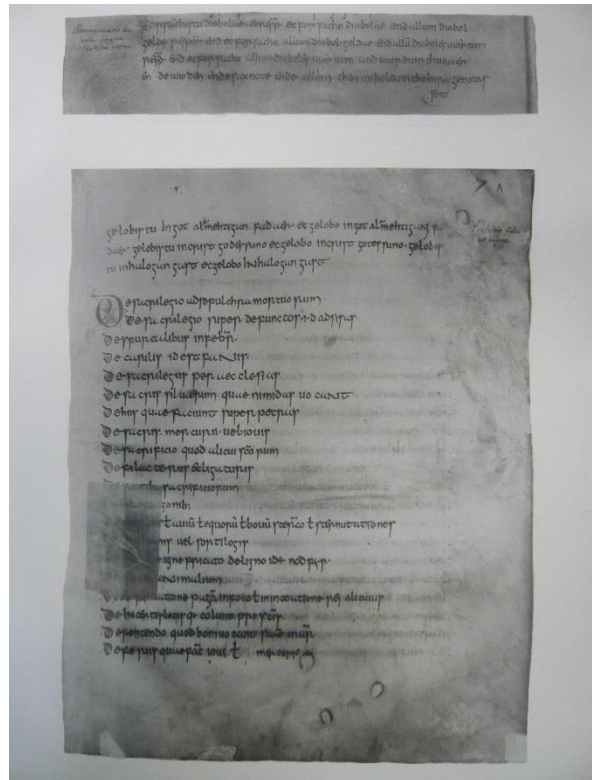 forsachistu diobolae & resp ec forsacho diabolae end allum diobol
gelde resp end ec forsacho allum diobolgeldae end allu dioboles uuercum
resp end ec forsacho allum dioboles uuercum and uuordum thunaer
ende uuoden ende saxnote ende allum them unholdum the hira genotas
sint
gelobistu in got alamehtigan fadaer ec gelobo in got alamehtigan fa
daer gelobistu in crist godes suno ec gelobo in crist gotes suno gelobis
tu in halogan gast ec gelobo in halogan gast
De sacrilegio ad sepulchra mortuorum
De sacrilegio super defunctos id dadsisas
De spurcalibus in febr
De casulis id est fanis
De sacrilegiis per aecclesias
De sacris siluarum quae nimidas uocant
De hiis quae faciunt super petras
De sacris mercurii uel iouis
De sacrificio quod alicui scorum
De filacteriis & ligaturis
De fontibus sacrificiorum
equorū bouū stercora sternutationes
uel sortilegis
igne fricato de ligno id nodfyr
animalium
De obseruatione pagā in foco inchoatione rei alicuius
De incertis locis que colunt pro scis
De petendo quod boni uocant scae mar
De feriis quae fac ioui mercurio